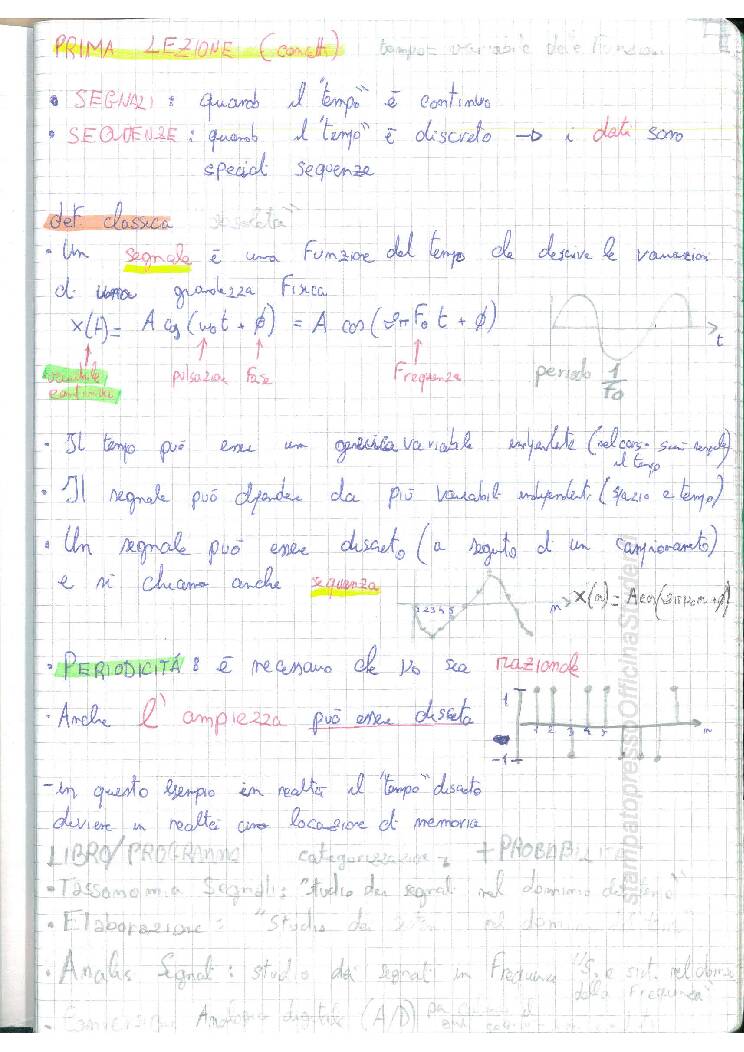 PRIMA LEZIONE (concetti) tempo = variabile delle funzioni
• SEGNALI : quando il "tempo" è continuo
• SEQUENZE : quando il "tempo" è discreto → i dati sono
speciali sequenze
def. classica
• Un segnale è una funzione del tempo che descrive le variazioni
di una grandezza fisica
x(t) = A cos(ω₀t + ϕ) = A cos(2πF₀ t + ϕ)
variabile continua
pulsazione
Fase
Frequenza
periodo 1/F₀
t
• Il tempo può essere una generica variabile indipendente
il tempo
• Il segnale può dipendere da più variabili indipendenti (spazio e tempo)
• Un segnale può essere discreto (a seguito di un campionamento)
e si chiama anche sequenza
1 2 3 4 5
n
x(n) = A cos(2πν₀n + ϕ)
• PERIODICITÁ : è necessario che ν₀ sia razionale
• Anche l'ampiezza può essere discreta
1
-1
1 2 3 4 5
n
- in questo esempio in realtà il "tempo" discreto
diviene in realtà una locazione di memoria
LIBRO/PROGRAMMA categorizzazione + PROBABILITÀ
• Tassonomia Segnali : "studio dei segnali nel dominio del tempo"
• Elaborazione : "Studio dei
• Analisi Segnali : studio dei segnali in Frequenza "S. e sist. nel dominio
della Frequenza"
• Conversione Analogico digitale (A/D)
stampatopressoOfficinaStudenti